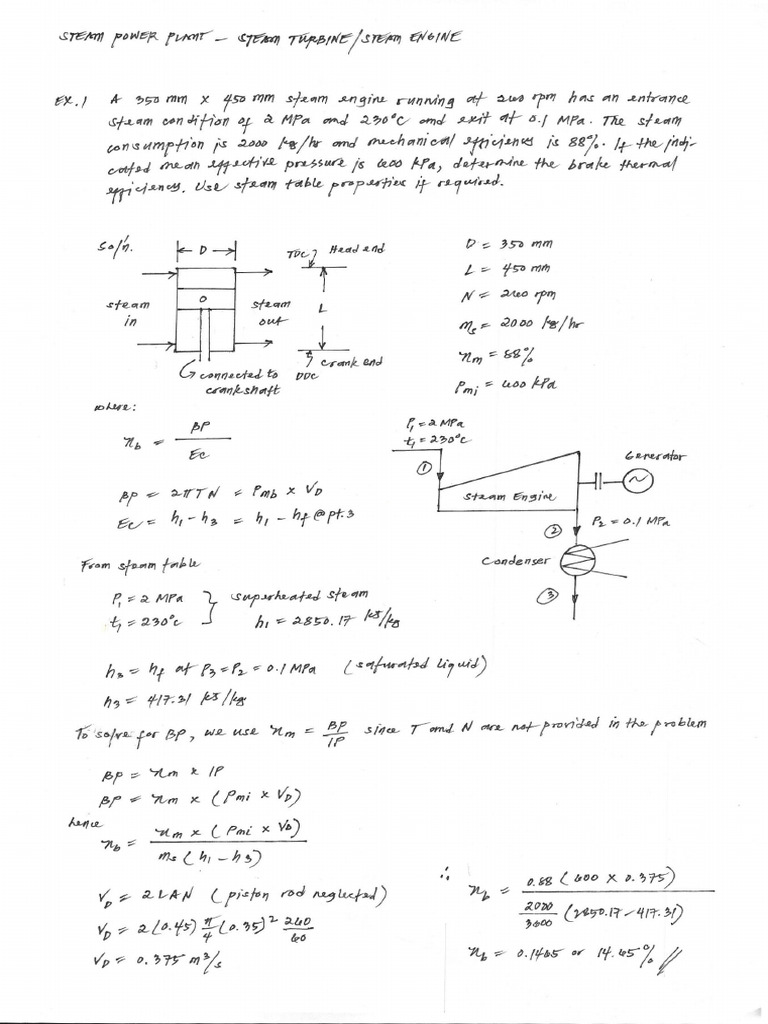 STEAM POWER PLANT – STEAM TURBINE/STEAM ENGINE
EX.1 A 350 mm x 450 mm steam engine running at 260 rpm has an entrance
steam condition of 2 MPa and 230°C and exit at 0.1 MPa. The steam
consumption is 2000 kg/hr and mechanical efficiency is 88%. If the indi-
cated mean effective pressure is 600 kPa, determine the brake thermal
efficiency. Use steam table properties if required.
Sol'n.
D
TDC
Head end
steam in
steam out
L
crank end
DDC
connected to crankshaft
D = 350 mm
L = 450 mm
N = 260 rpm
ms = 2000 kg/hr
ηm = 88%
Pmi = 600 kPa
where:
ηb = BP / Ec
BP = 2πTN = Pmb x VD
Ec = h1 - h3 = h1 - hf @ pt.3
P1 = 2 MPa
t1 = 230°C
①
Steam Engine
Generator
②
P2 = 0.1 MPa
Condenser
③
From steam table
P1 = 2 MPa } superheated steam
t1 = 230°C } h1 = 2850.17 kJ/kg
h3 = hf at P3 = P2 = 0.1 MPa (saturated liquid)
h3 = 417.31 kJ/kg
To solve for BP, we use ηm = BP/IP since T and N are not provided in the problem
BP = ηm x IP
BP = ηm x (Pmi x VD)
hence
ηb = ηm x (Pmi x VD) / ms (h1 - h3)
VD = 2LAN (piston rod neglected)
VD = 2(0.45) π/4 (0.35)² 260/60
VD = 0.375 m³/s
∴ ηb = 0.88 (600 x 0.375) / 2000/3600 (2850.17 - 417.31)
ηb = 0.1465 or 14.65% //